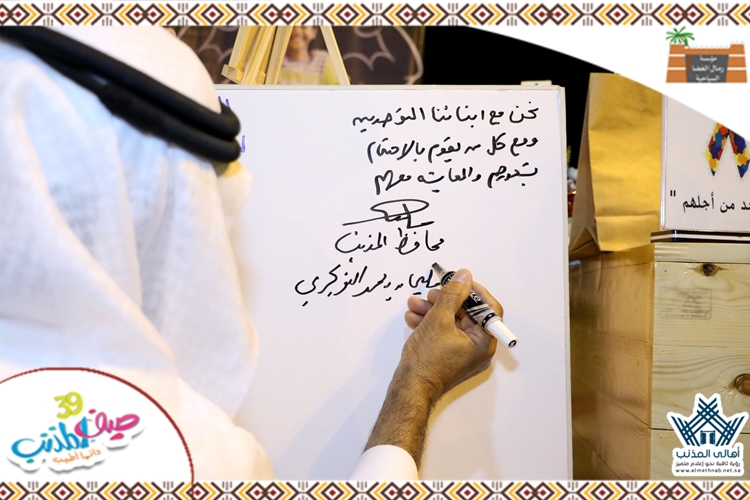 مؤسسة
رمال الغضا
السياحية
نحن مع ابنائنا التوحديين
ومع كل من يقوم بالاهتمام
بشؤونهم والعناية بهم
محافظ المذنب
النويجري
من أجلهم "
صيف المذنب 39
دائما أطيب
أهالي المذنب
رؤية ثاقبة نحو إعلام متميز
www.almethnab.net.sa